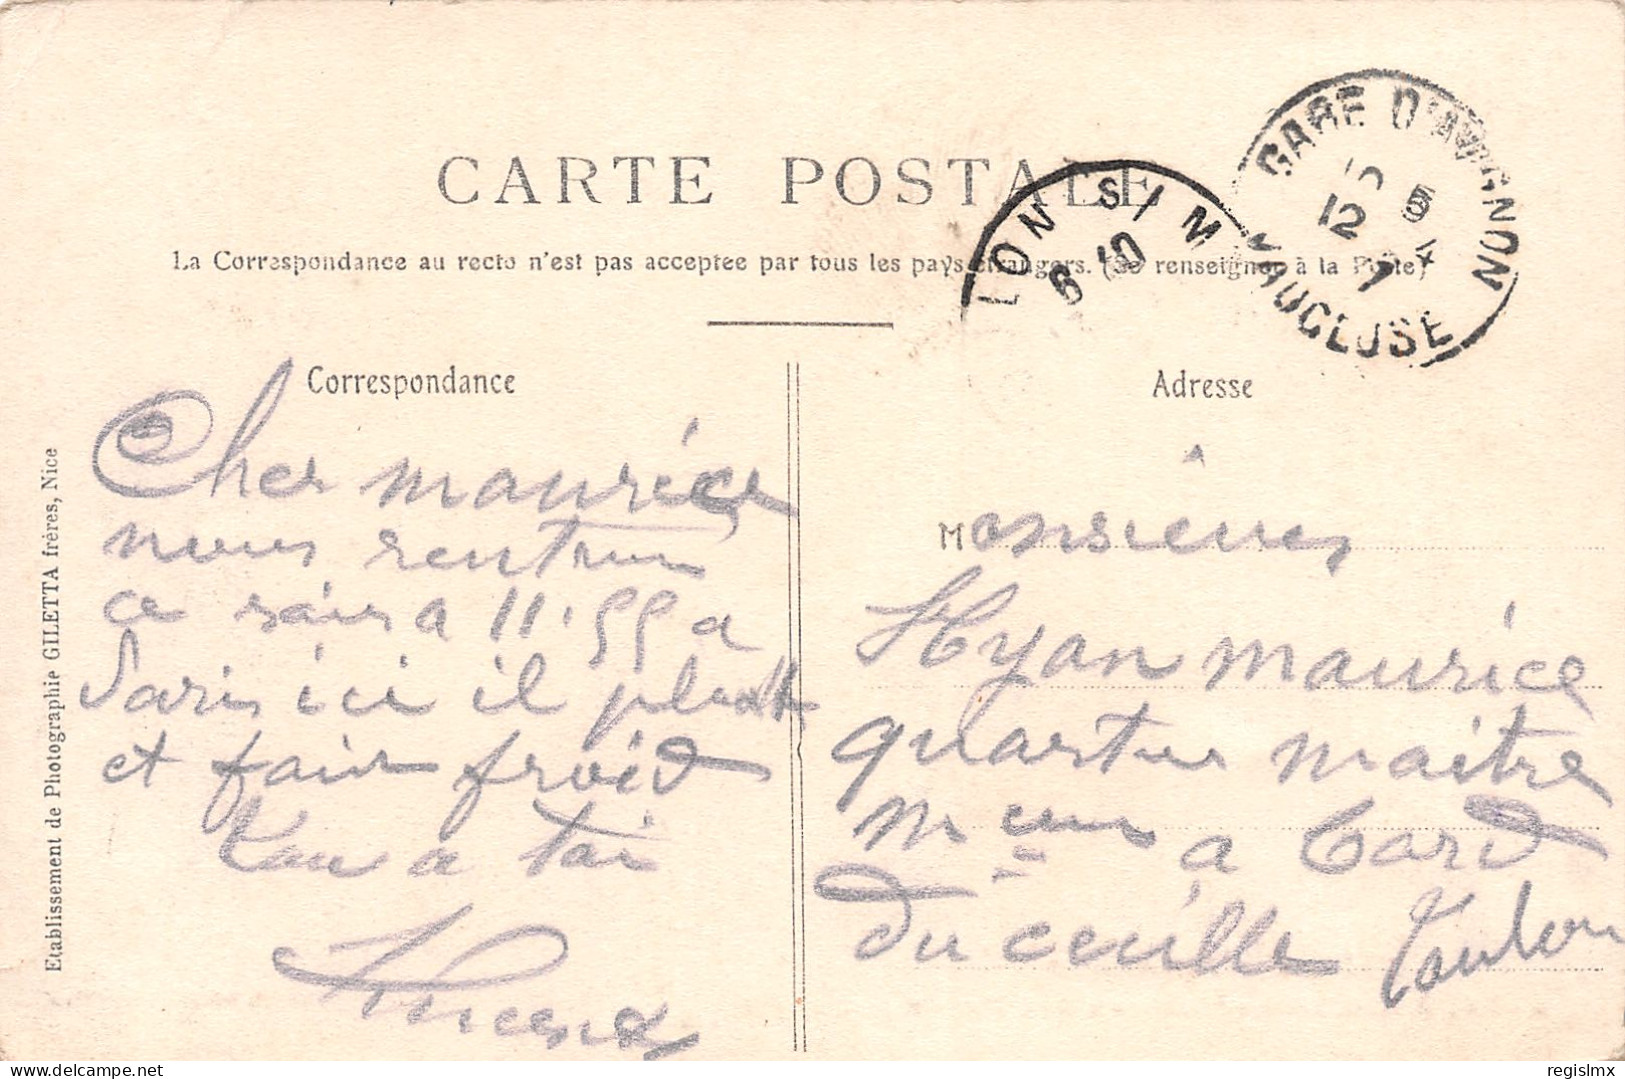 CARTE POSTALE
La Correspondance au recto n'est pas acceptée par tous les pays étrangers. (Se renseigner à la Poste)
GARE D'AVIGNON
12 5
VAUCLUSE
LON S/ M
Correspondance
Adresse
Cher maurice
nous rentrun
ce soir a 11.55 a
Paris ici il pleut
et fair froid
a toi
Vincent
Monsieur
Hyan maurice
quartier maitre
a bord
du
Toulon
Etablissement de Photographie GILETTA frères, Nice
regislmx